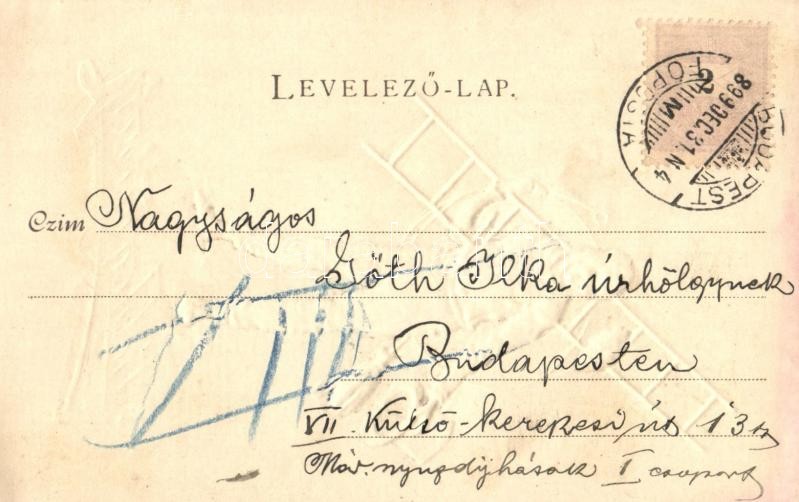 LEVELEZŐ-LAP.
BUDAPEST
FŐPOSTA
899 DEC. 31. N 4
M
2
Czim Nagyságos
Góth Ilka úrhölgynek
Budapesten
VII. Külső-kerepesi út 13
Máv. nyugdijházak I csoport
VII